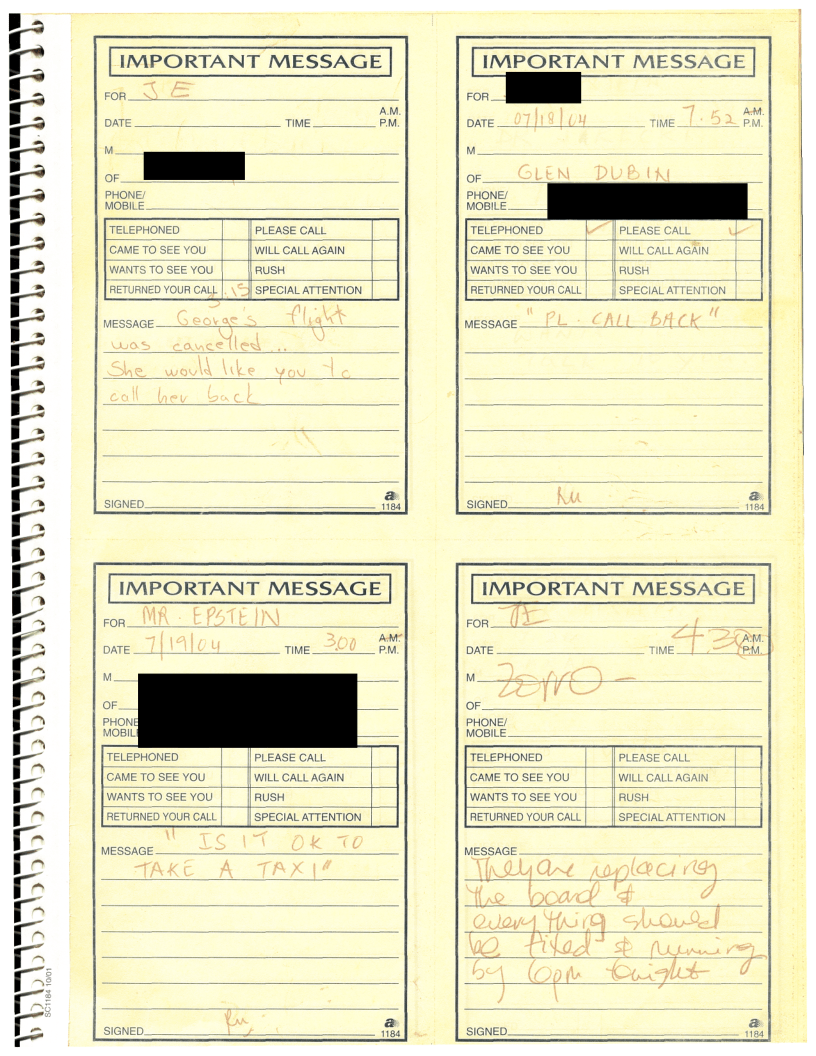 IMPORTANT MESSAGE
FOR J E
A.M.
DATE TIME P.M.
M
OF
PHONE/
MOBILE
TELEPHONED PLEASE CALL
CAME TO SEE YOU WILL CALL AGAIN
WANTS TO SEE YOU RUSH
RETURNED YOUR CALL SPECIAL ATTENTION
3.15
MESSAGE George's flight
was cancelled...
She would like you to
call her back
SIGNED
a
1184
IMPORTANT MESSAGE
FOR
A.M.
DATE 07/18/04 TIME 7.52 P.M.
M
OF GLEN DUBIN
PHONE/
MOBILE
TELEPHONED ✓ PLEASE CALL ✓
CAME TO SEE YOU WILL CALL AGAIN
WANTS TO SEE YOU RUSH
RETURNED YOUR CALL SPECIAL ATTENTION
MESSAGE "PL. CALL BACK"
SIGNED
a
1184
IMPORTANT MESSAGE
FOR MR. EPSTEIN
A.M.
DATE 7/19/04 TIME 3.00 P.M.
M
OF
PHONE
MOBIL
TELEPHONED PLEASE CALL
CAME TO SEE YOU WILL CALL AGAIN
WANTS TO SEE YOU RUSH
RETURNED YOUR CALL SPECIAL ATTENTION
MESSAGE " IS IT OK TO
TAKE A TAXI"
SIGNED
a
1184
SC1184 10/01
IMPORTANT MESSAGE
FOR JE
A.M.
DATE TIME 4.30 P.M.
M Zorro -
OF
PHONE/
MOBILE
TELEPHONED PLEASE CALL
CAME TO SEE YOU WILL CALL AGAIN
WANTS TO SEE YOU RUSH
RETURNED YOUR CALL SPECIAL ATTENTION
MESSAGE
They are replacing
the board &
everything should
be fixed & running
by 6pm tonight
SIGNED
a
1184